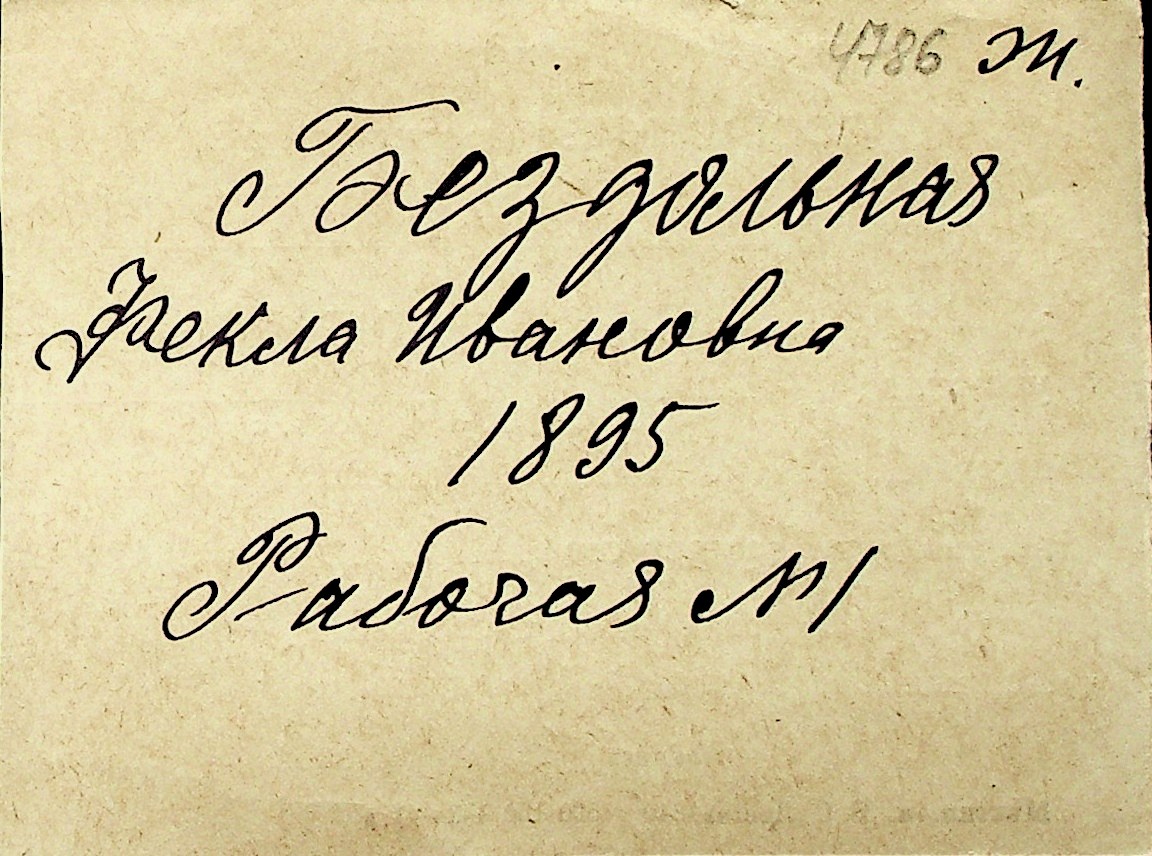 4786 Ж.
Бездольная
Фекла Ивановна
1895
Рабочая №1